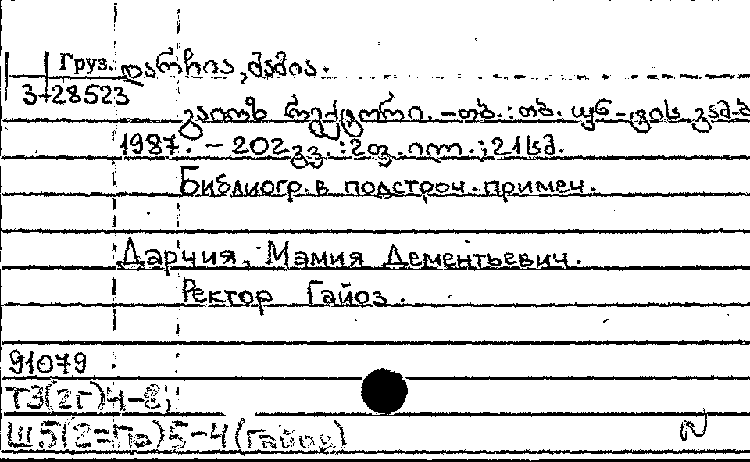 Груз. დარჩია, მამია.
3-28523
გაიოზ რექტორი. – თბ. : თბ. უნ-ტის გამ-ბ
1987. – 202 გვ. : 2 ფ. ილ. ; 21 სმ.
Библиогр. в подстроч. примеч.
Дарчия, Мамия Дементьевич.
Ректор Гайоз.
91079
Т3(2Г)4-8;
Ш5(2=Га)5-4(Гайоз)